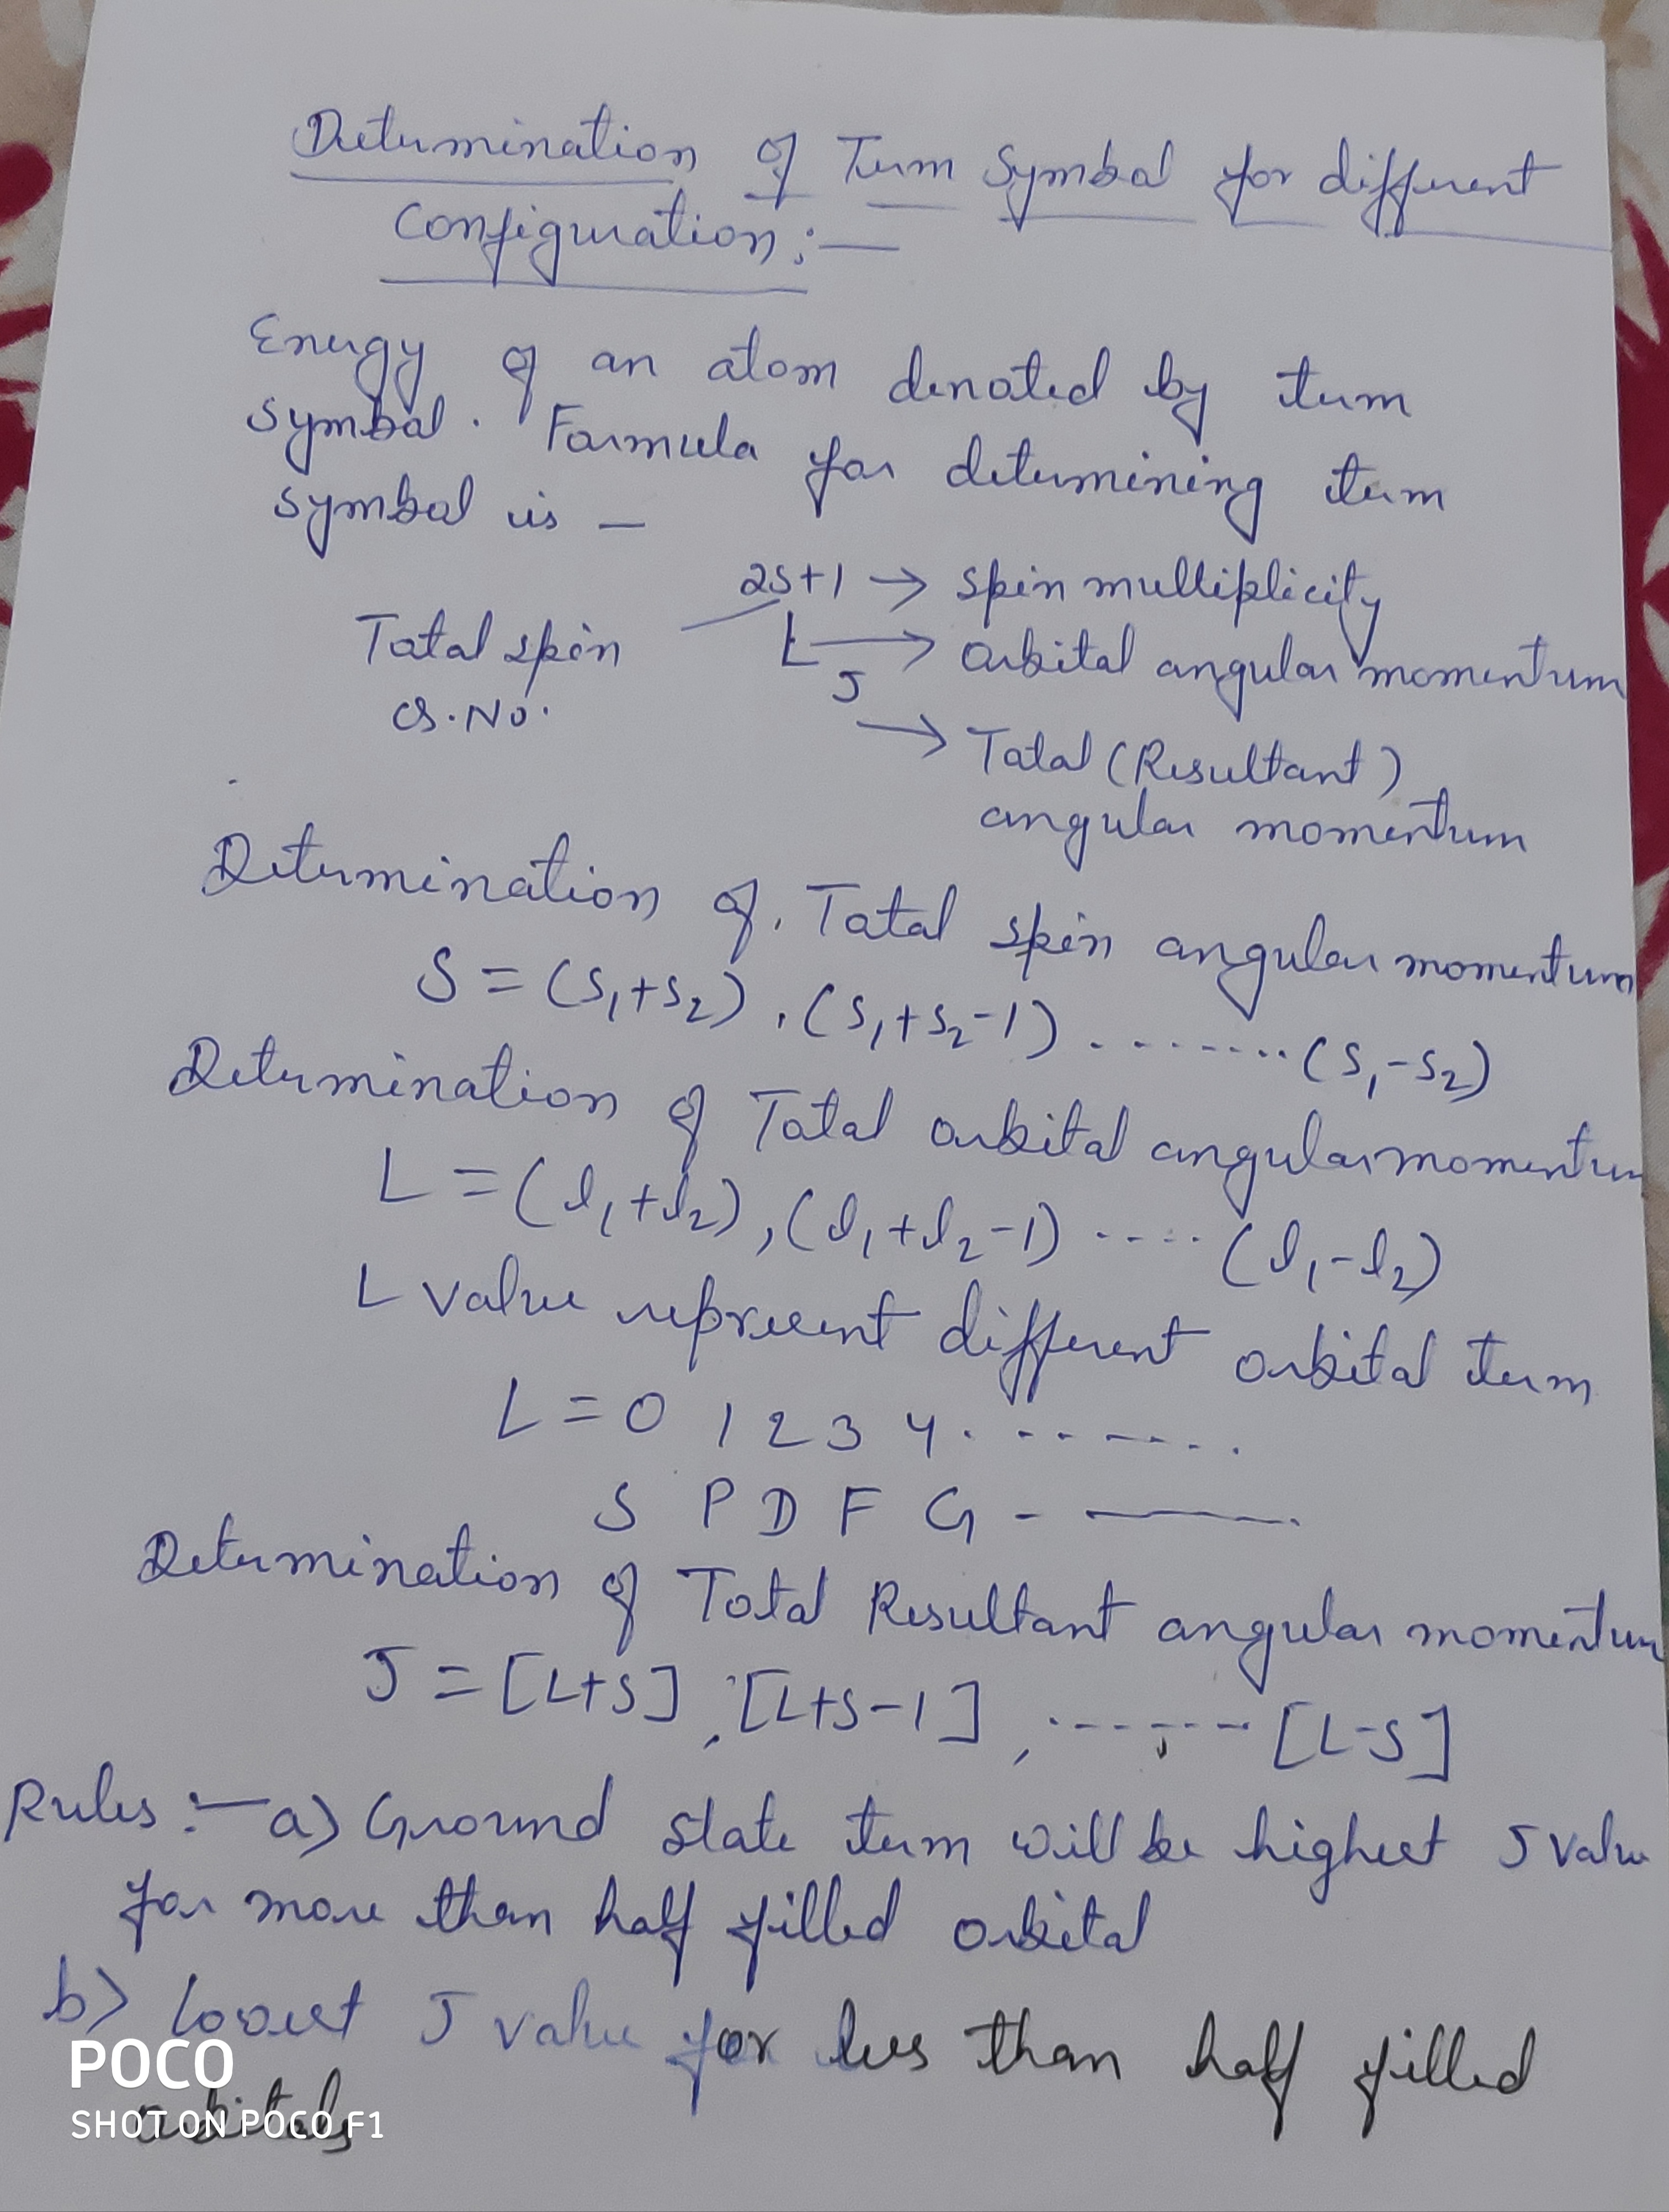 Determination of Term Symbol for different
Configuration :—
Energy of an atom denoted by term
symbol. Formula for determining term
symbol is —
2S+1 → spin multiplicity
Total spin
L → orbital angular momentum
J
Q.No.
→ Total (Resultant)
angular momentum
Determination of Total spin angular momentum
S = (s₁+s₂), (s₁+s₂-1) ........ (s₁-s₂)
Determination of Total orbital angular momentum
L = (l₁+l₂), (l₁+l₂-1) ..... (l₁-l₂)
L value represent different orbital term
L = 0 1 2 3 4 ........
S P D F G - —
Determination of Total Resultant angular momentum
J = [L+S], [L+S-1], ........ [L-S]
Rules :— a) Ground state term will be highest J value
for more than half filled orbital
b) lowest J value for less than half filled
orbitals
POCO
SHOT ON POCO F1